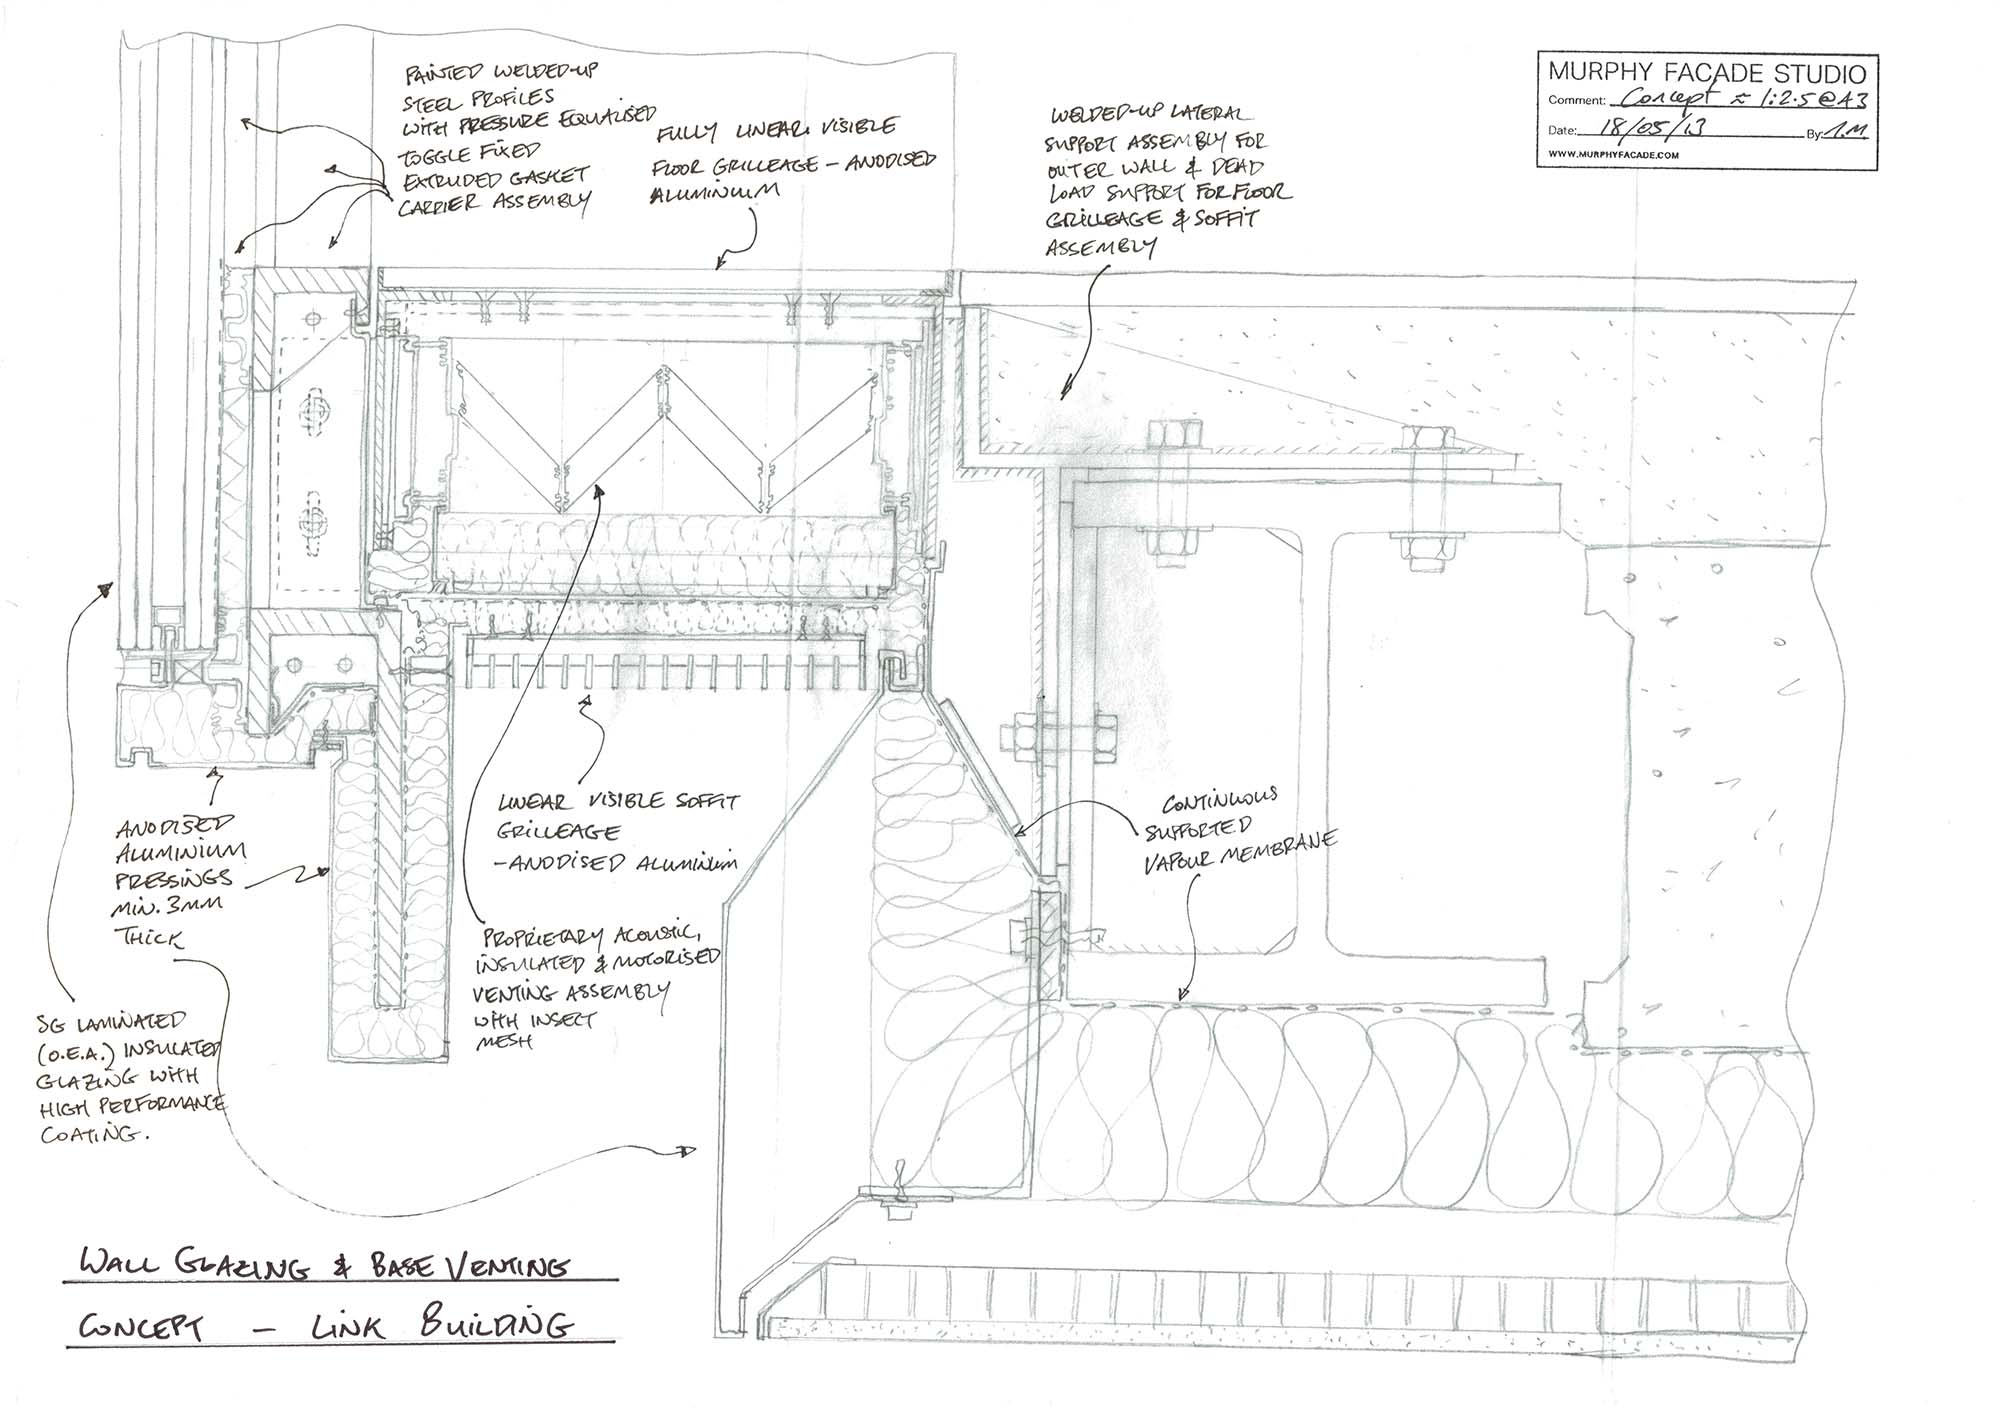 MURPHY FACADE STUDIO
Comment: Concept ≈ 1:2.5@A3
Date: 18/05/13 By:
WWW.MURPHYFACADE.COM
PAINTED WELDED-UP
STEEL PROFILES
WITH PRESSURE EQUALISED
TOGGLE FIXED
EXTRUDED GASKET
CARRIER ASSEMBLY
FULLY LINEAR VISIBLE
FLOOR GRILLEAGE - ANODISED
ALUMINIUM
WELDED-UP LATERAL
SUPPORT ASSEMBLY FOR
OUTER WALL & DEAD
LOAD SUPPORT FOR FLOOR
GRILLEAGE & SOFFIT
ASSEMBLY
ANODISED
ALUMINIUM
PRESSINGS
MIN. 3MM
THICK
LINEAR VISIBLE SOFFIT
GRILLEAGE
-ANODISED ALUMINIUM
CONTINUOUS
SUPPORTED
VAPOUR MEMBRANE
PROPRIETARY ACOUSTIC,
INSULATED & MOTORISED
VENTING ASSEMBLY
WITH INSECT
MESH
SG LAMINATED
(O.E.A.) INSULATED
GLAZING WITH
HIGH PERFORMANCE
COATING.
WALL GLAZING & BASE VENTING
CONCEPT - LINK BUILDING